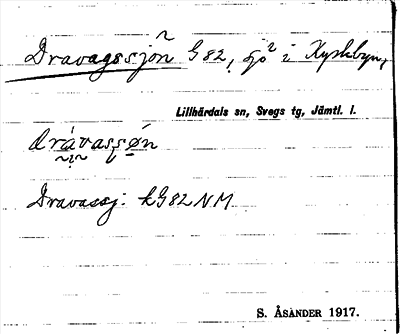 Dravagssjön G 82, sjö i Kyrkbyn,
Lillhärdals sn, Svegs tg, Jämtl. l.
dråvassøn
Dravassj. kG82NM
S. ÅSANDER 1917.